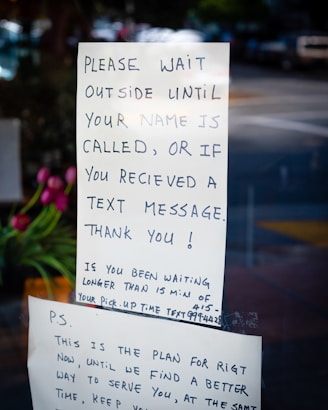 PLEASE WAIT
OUTSIDE UNTIL
YOUR NAME IS
CALLED, OR IF
YOU RECIEVED A
TEXT MESSAGE.
THANK YOU !
IS YOU BEEN WAITING
LONGER THAN 15 MIN OF
YOUR PICK.UP TIME TEXT 415-
P.S.
THIS IS THE PLAN FOR RIGT
NOW, UNTIL WE FIND A BETTER
WAY TO SERVE YOU, AT THE SAME
TIME, KEEP